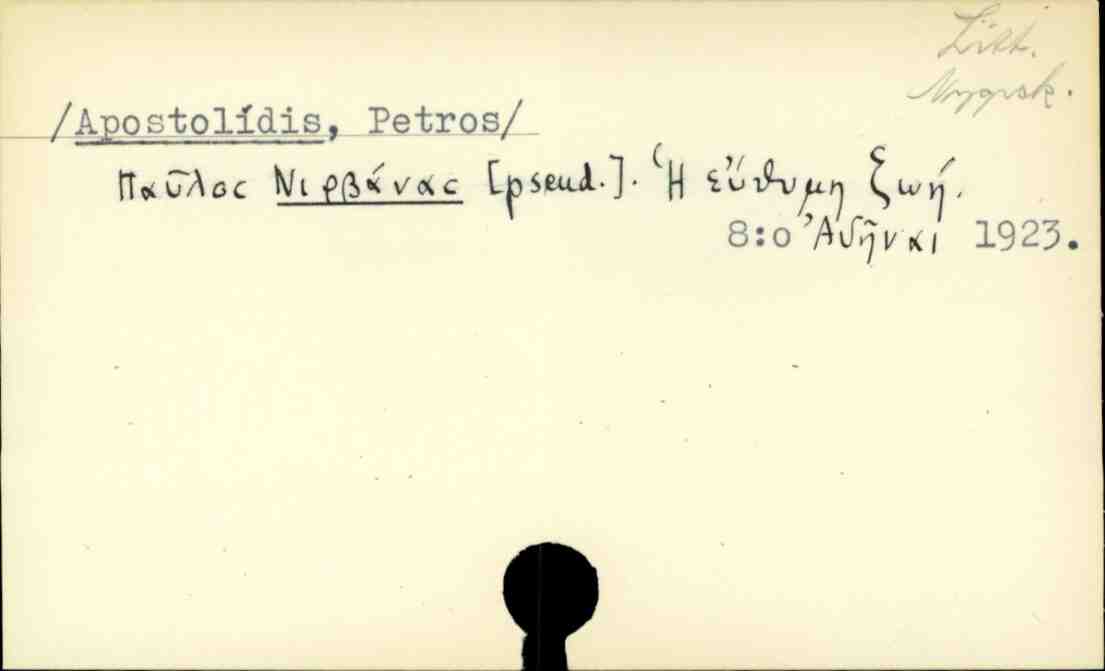 Litt.
Nygrsk.
/Apostolídis, Petros/
Παῦλος Νιρβάνας [pseud.]. Ἡ εὔθυμη ζωή.
8:o Ἀθῆναι 1923.